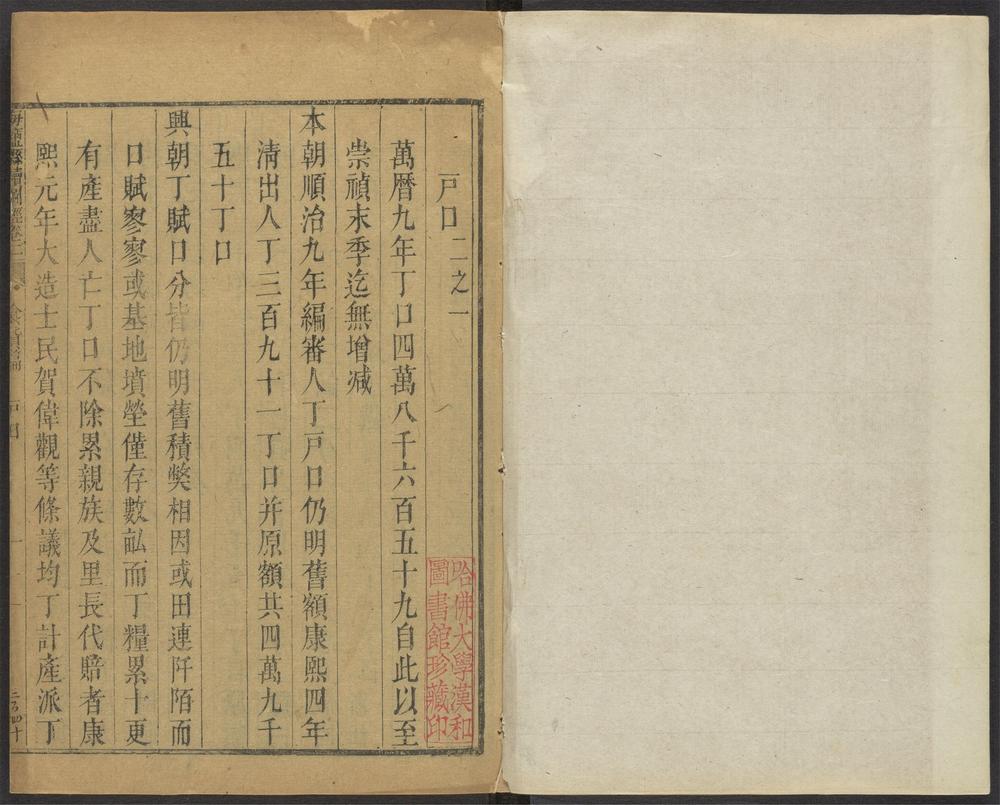 戸口二之一
萬曆九年丁口四萬八千六百五十九自此以至
崇禎末季迄無增減
本朝順治九年編審人丁戸口仍明舊額康熙四年
清出人丁三百九十一丁口并原額共四萬九千
五十丁口
興朝丁賦口分皆仍明舊積獘相因或田連阡陌而
口賦寥寥或基地墳塋僅存數畝而丁糧累十更
有產盡人亡丁口不除累親族及里長代賠者康
熙元年大造士民賀偉觀等條議均丁計產派丁
海鹽縣續圖經卷二
食貨篇
戸口
一
哈佛大學漢和
圖書館珍藏印